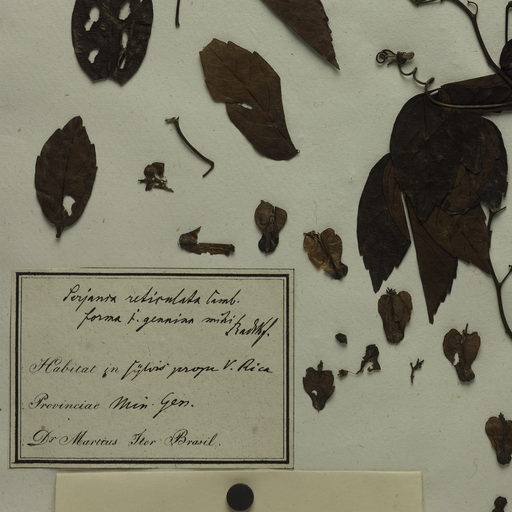 Serjania reticulata Camb.
forma I. genuina mihi
Radlkf.
Habitat in sylvis prope V. Rica
Provinciae Min. Gen.
Dr Martius Iter Brasil.